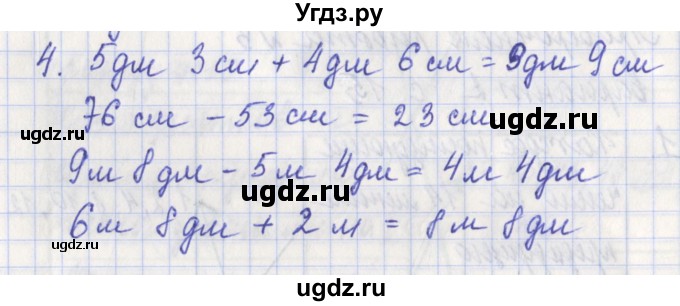 Угдз.ру
4. 5дм 3см + 4дм 6см = 9дм 9см
76 см - 53 см = 23 см
ugdz.ru ugdz.ru
9м 8дм - 5м 4дм = 4м 4дм
ugdz.ru ugdz.ru
6м 8дм + 2м = 8м 8дм
ugdz.ru ugdz.ru